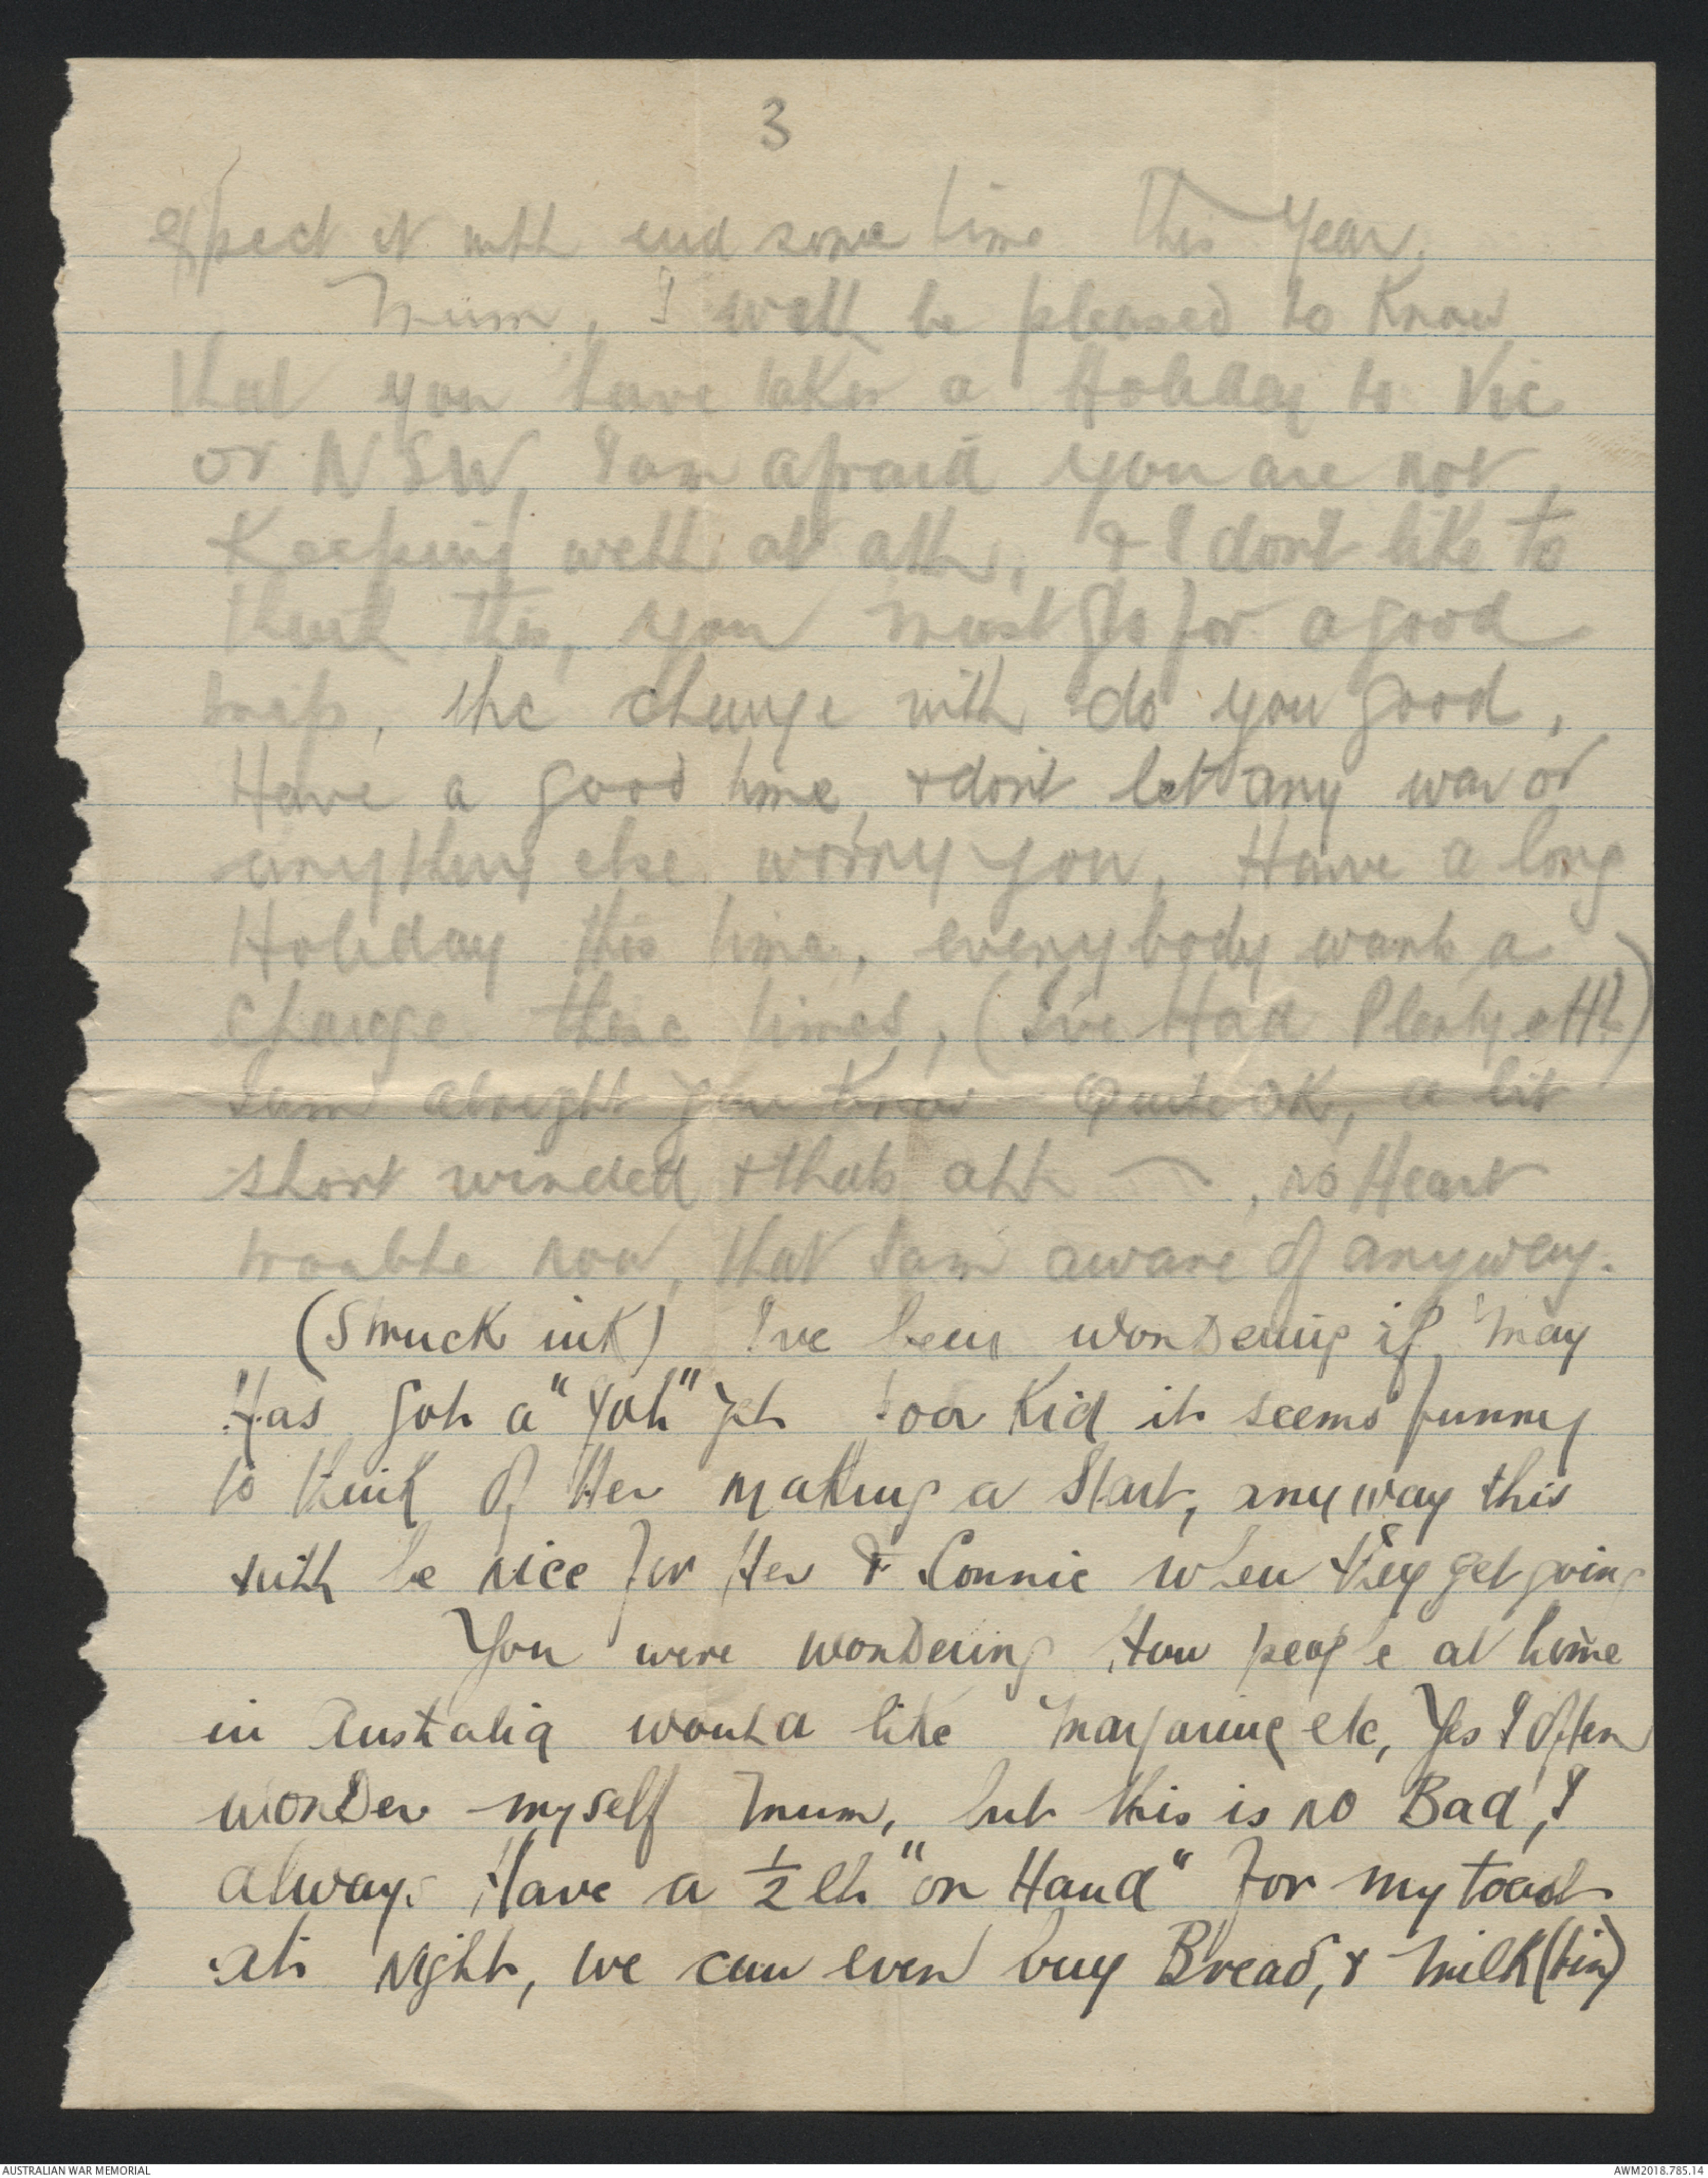 3
expect it will end some time this Year.
Mum, I will be pleased to Know
that you have taken a Holiday to Vic
or NSW, I am afraid you are not
Keeping well at all, & I dont like to
think this, you must go for a good
trip, the change will do you good,
Have a good time, & dont let any war or
anything else worry you, Have a long
Holiday this time, everybody wants a
change these times, (I've Had Plenty eh!!)
I am alright you know - Quite OK, a bit
short winded & thats all, no Heart
trouble now, that I am aware of anyway.
(Struck ink) I've been wondering if May
Has got a "Job" yet Poor Kid it seems funny
to think of Her making a Start, anyway this
will be nice for Her & Connie when they get going
You were wondering How people at home
in Australia would like Margarine etc, Yes I often
wonder myself Mum, but this is no Bad, I
always Have a ½ lb "on Hand" for my toast
at night, we can even buy Bread, & Milk (tin)
AUSTRALIAN WAR MEMORIAL
AWM2018.785.14